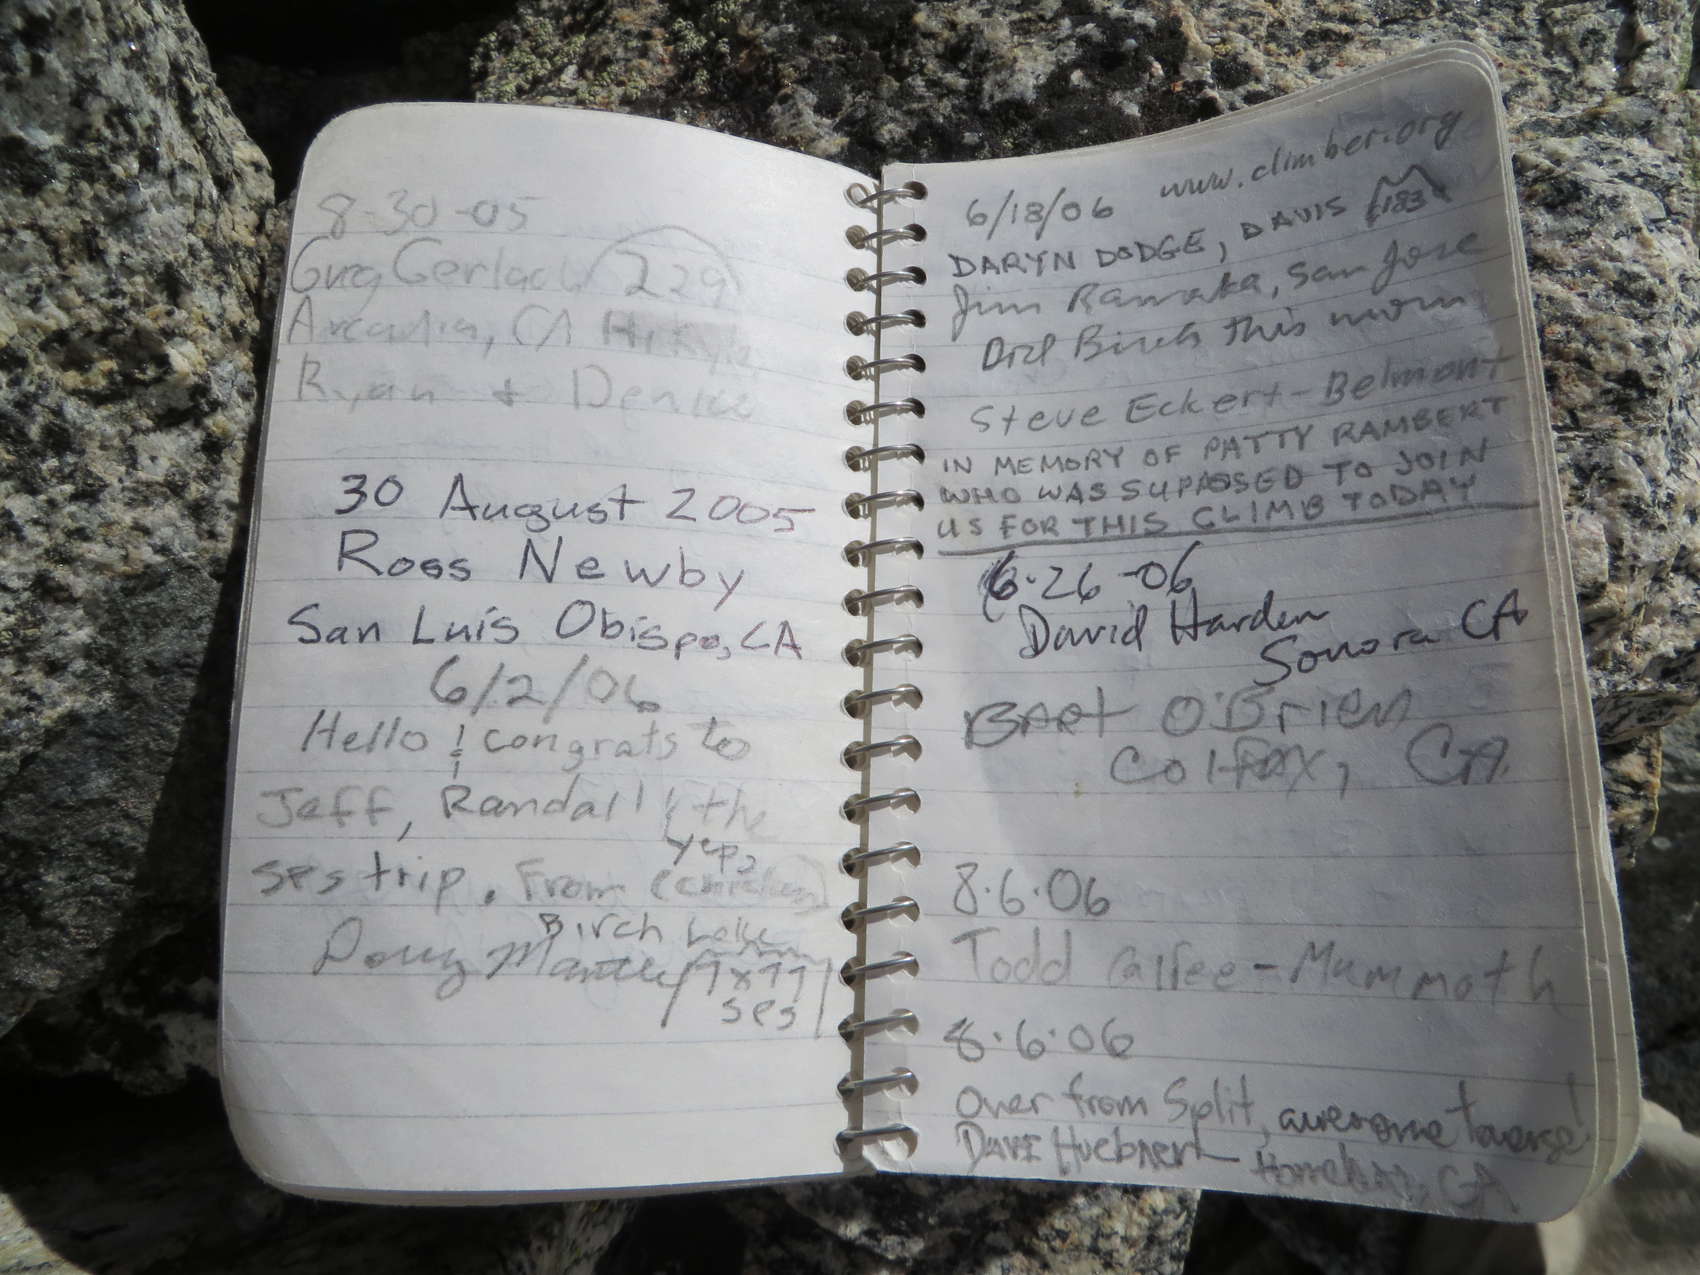 8-30-05
Greg Gerlach 229
Arcadia, CA Hi Kyle
Ryan + Denise
30 August 2005
Ross Newby
San Luis Obispo, CA
6/2/06
Hello & congrats to
Jeff, Randall & the
SPS trip. From (chicken)
yep,
Birch Lake
Doug Mantle 7x77
SPS
www.climber.org
6/18/06
DARYN DODGE, DAVIS 183
Jim Ramaka, San Jose
Did Birch this morn
Steve Eckert - Belmont
IN MEMORY OF PATTY RAMBERT
WHO WAS SUPPOSED TO JOIN
US FOR THIS CLIMB TODAY
6-26-06
David Harden
Sonora CA
Bart O'Brien
Colfax, CA.
8.6.06
Todd Calfee - Mammoth
8.6.06
Over from Split, awesome traverse!
DAVE Huebner CA